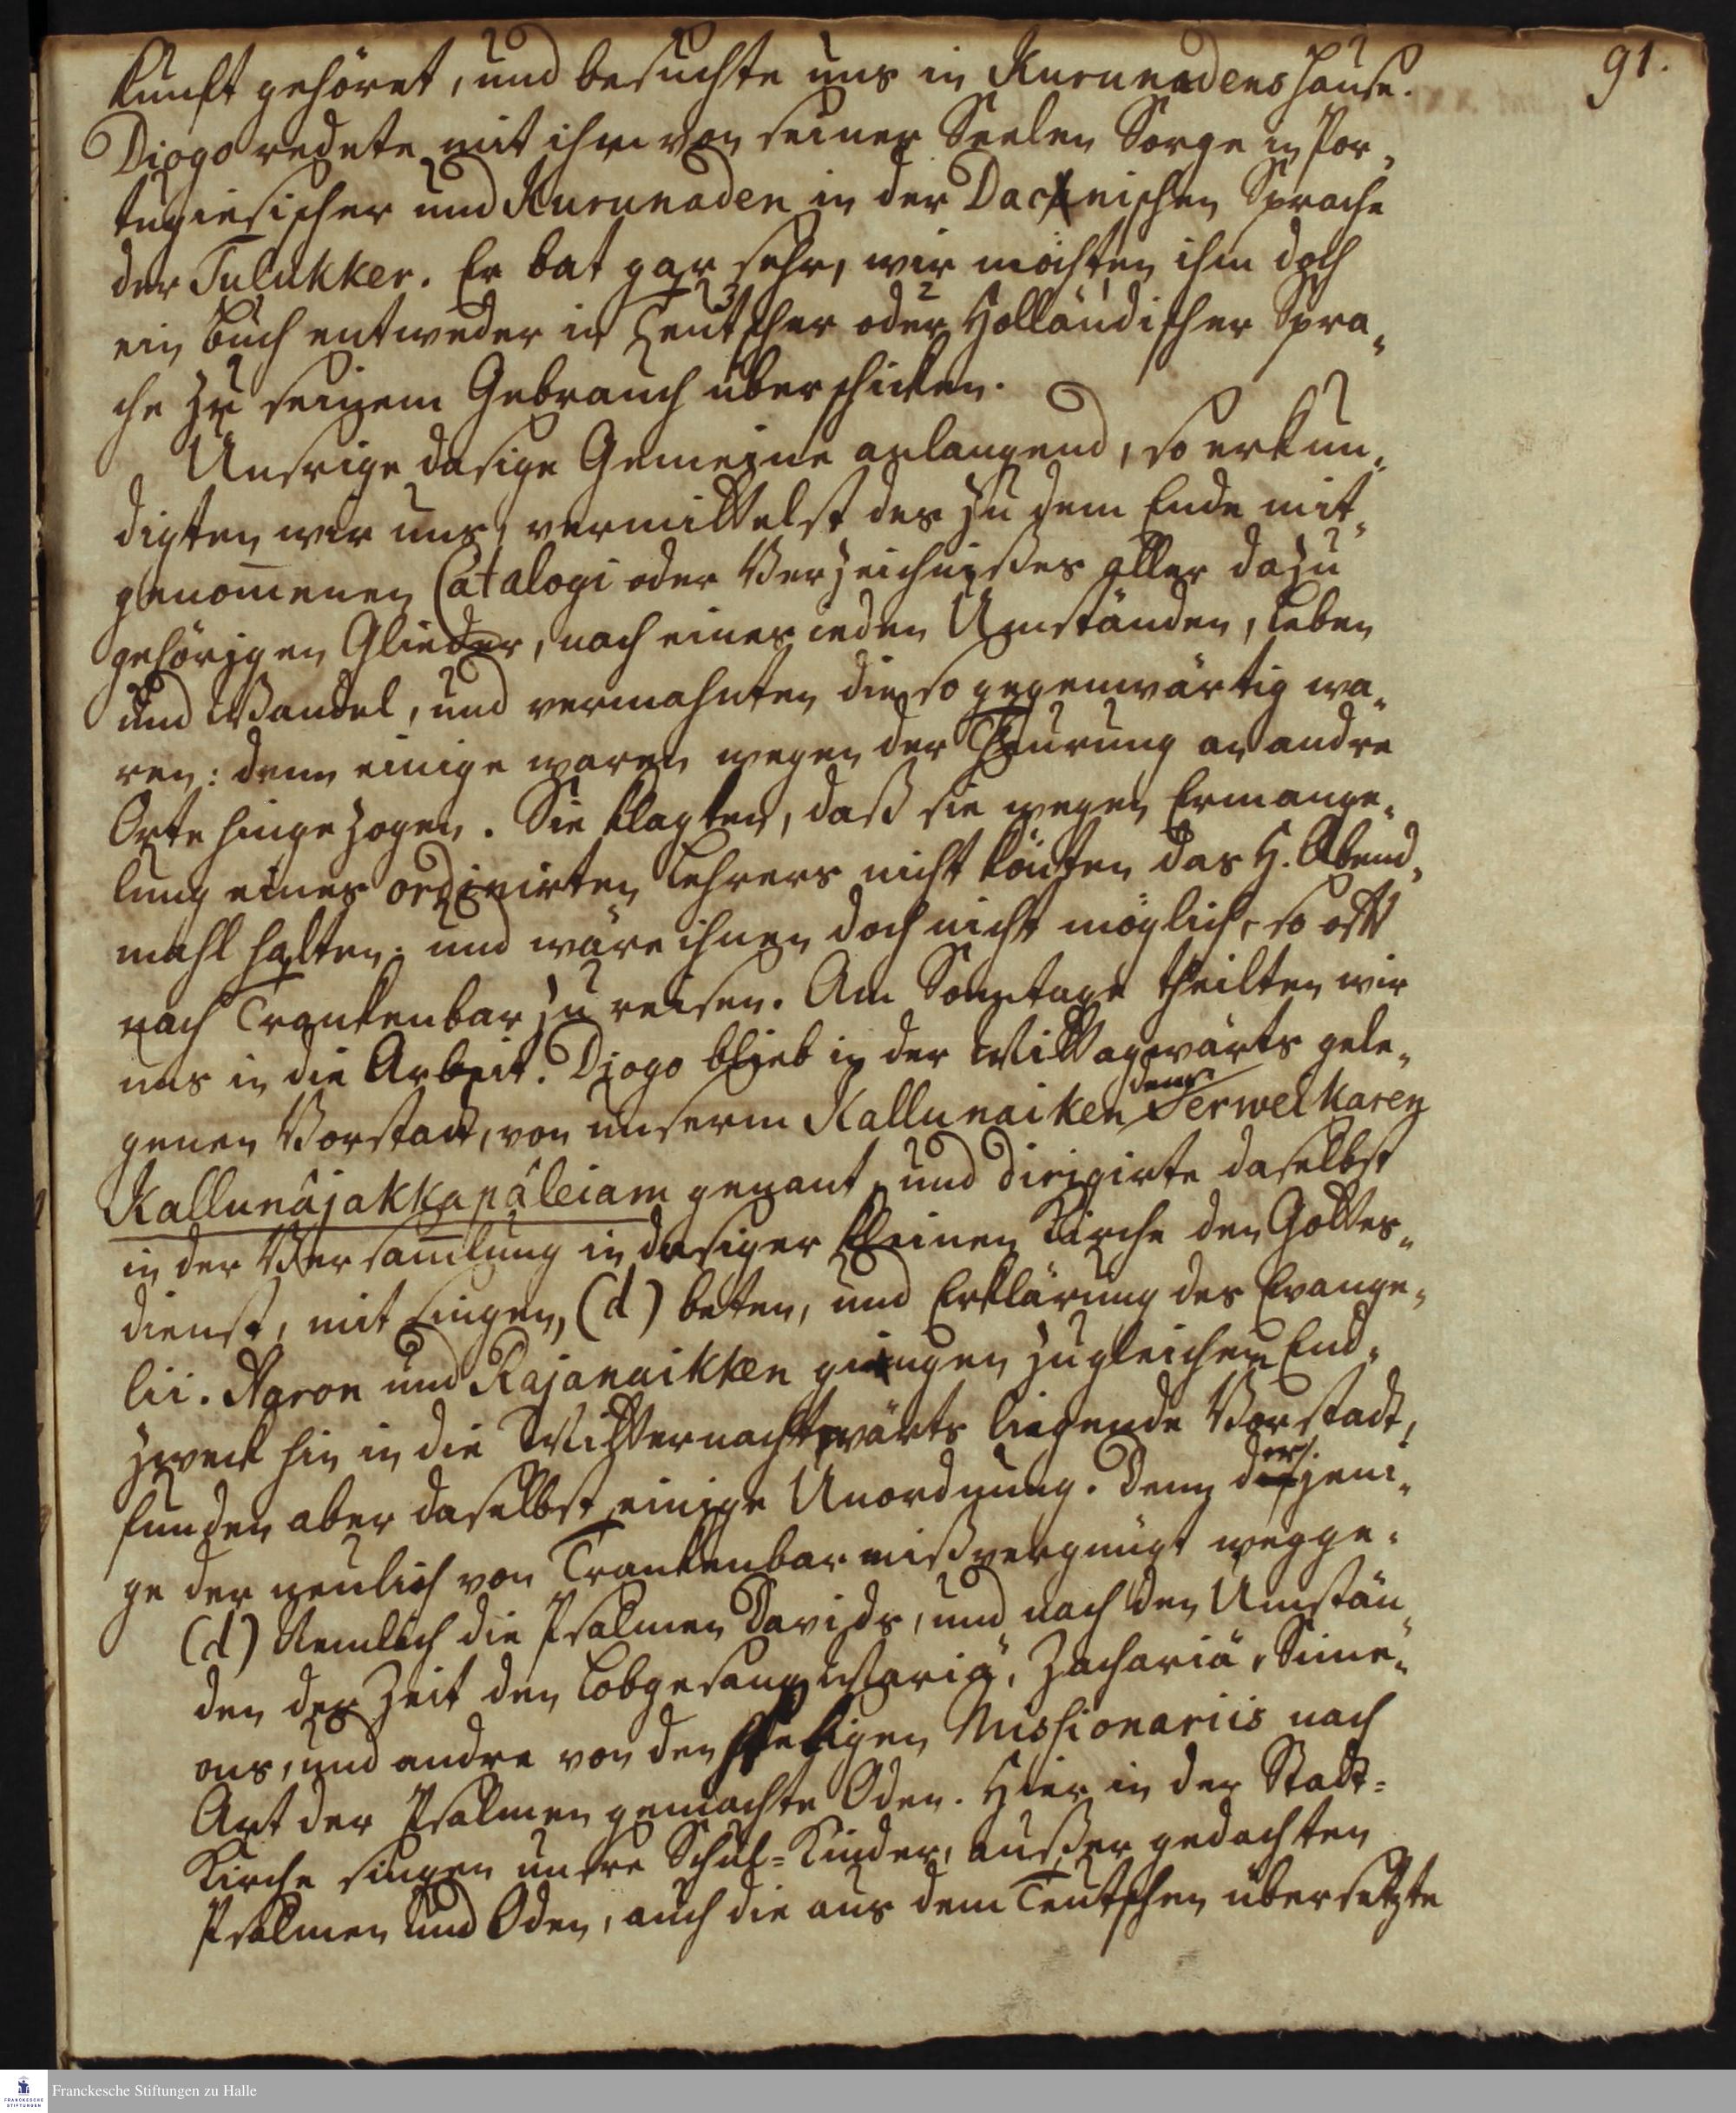 91.
kunft gehöret, und besuchte uns in Kurunadens Hause.
Diogo redete mit ihm von seiner Seelen Sorge in Por-
tugiesischer und Kurunaden in der Dacknischen Sprache
der Tulukker. Er bat gar sehr, wir möchten ihm doch
ein Buch entweder in Teutscher oder Holländischer Spra-
che zu seinem Gebrauch überschicken.
Unsrige dasige Gemeine anlangend, so erkun-
digten wir uns, vermittelst des zu dem Ende mit-
genom̄enen Catalogi oder Verzeichnißes aller dazu
gehörigen Glieder, nach eines ieden Umständen, Leben
und Wandel, und vermahnten die so gegenwärtig wa-
ren: denn einige waren wegen der Theurung an andre
Orte hingezogen. Sie klagten, daß sie wegen Ermange-
lung eines ordinirten Lehrers nicht könten das H. Abend-
mahl halten; und wäre ihnen doch nicht möglich, so oft
nach Trankenbar zu reisen. Am Sonntage theilten wir
uns in die Arbeit. Diogo blieb in der Mittagwärts gele-
genen Vorstadt, von unserm Kallunaiken dem Serweikaren
Kallunâjakkapâleiam genant, und dirigirte daselbst
in der Versam̄lung in dasiger kleinen Kirche den Gottes-
dienst, mit singen, (d) beten, und Erklärung des Evange-
lii. Aaron und Rajanaikken giengen zu gleichem End-
zweck hin in die Mitternachtwärts liegende Vorstadt,
funden aber daselbst einige Unordnung. Denn derjeni-
ge der neulich von Trankenbar mißvergnügt wegge-
(d) Nemlich die Psalmen Davids, und nach den Umstän-
den der Zeit den Lobgesang Mariä, Zachariä, Sime-
ons, und andre von den seeligen Missionariis nach
Art der Psalmen gemachte Oden. Hier in der Stadt-
Kirche singen unsre Schul-Kinder, außer gedachten
Psalmen und Oden, auch die aus dem Teutschen übersetzte
Franckesche Stiftungen zu Halle